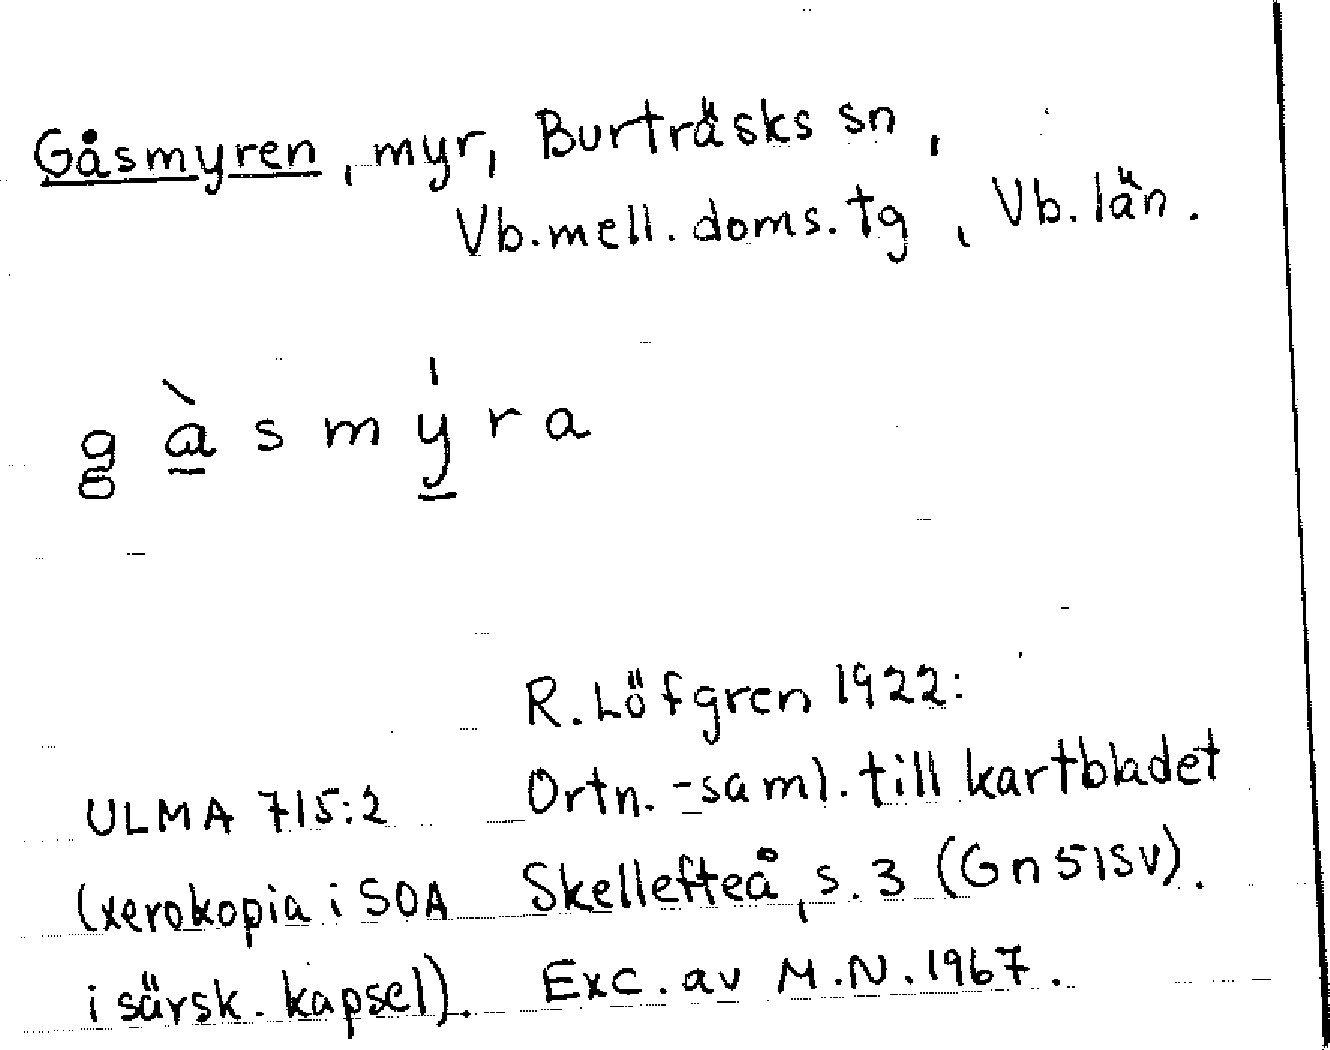 Gåsmyren, myr, Burträsks sn,
Vb. mell. doms. tg, Vb. län.
g à s m ý r a
R. Löfgren 1922:
ULMA 715:2 Ortn.-saml. till kartbladet
(xerokopia i SOA Skellefteå, s. 3 (Gn 51SV).
i särsk. kapsel). Exc. av M.N. 1967.